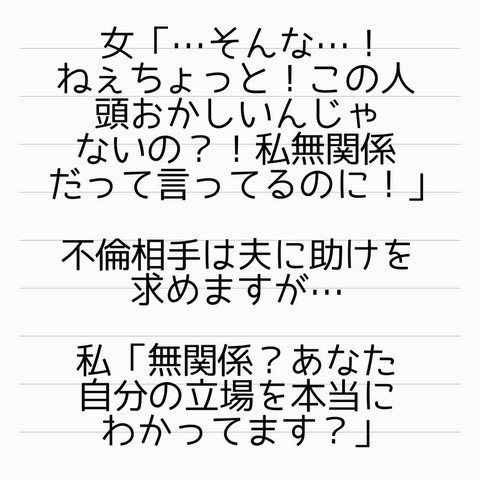 女「…そんな…！
ねぇちょっと！この人
頭おかしいんじゃ
ないの？！私無関係
だって言ってるのに！」
不倫相手は夫に助けを
求めますが…
私「無関係？あなた
自分の立場を本当に
わかってます？」